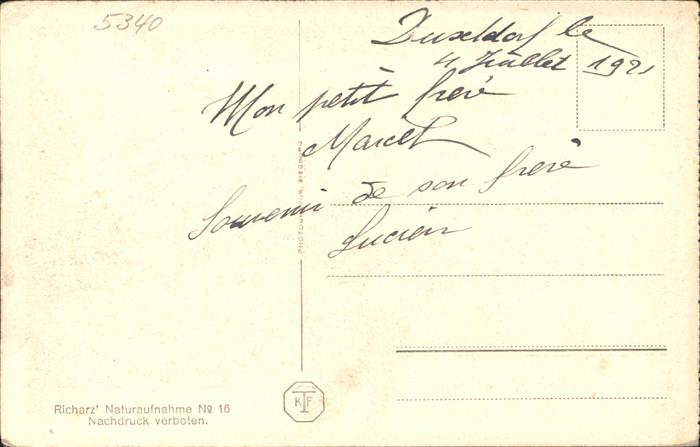 5340
Dusseldorf le
4 Juillet 1921
Mon petit frère
Marcel
Souvenir de son frère
Lucien
Richarz' Naturaufnahme № 16
Nachdruck verboten.
KTF